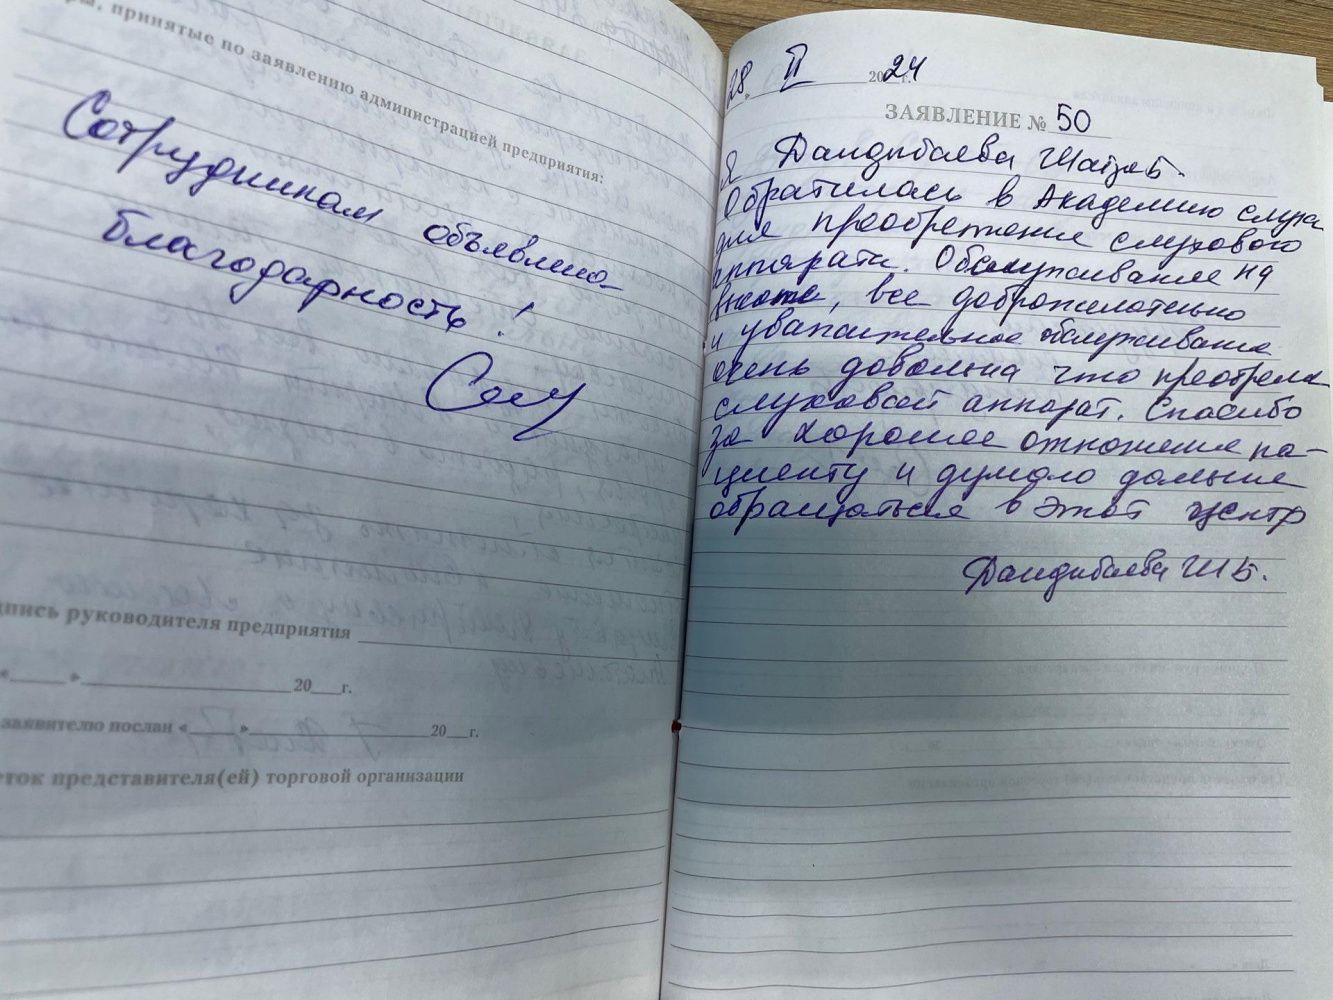 ры, принятые по заявлению администрацией предприятия:
Сотрудникам объявлено
благодарность!
дпись руководителя предприятия
« » 20 г.
заявителю послан « » 20 г.
еток представителя(ей) торговой организации
28 II 2024 г.
ЗАЯВЛЕНИЕ № 50
Я Дандыбаева Б.
Обратилась в Академию слуха
для преобретение слухового
аппарата. Обслуживание на
высоте, все доброжелательно
и уважительное обслуживание
очень довольна что преобрела
слуховой аппарат. Спасибо
за хорошее отношение па-
циенту и думаю дальше
обращаться в этот центр
Дандыбаева Ш Б.